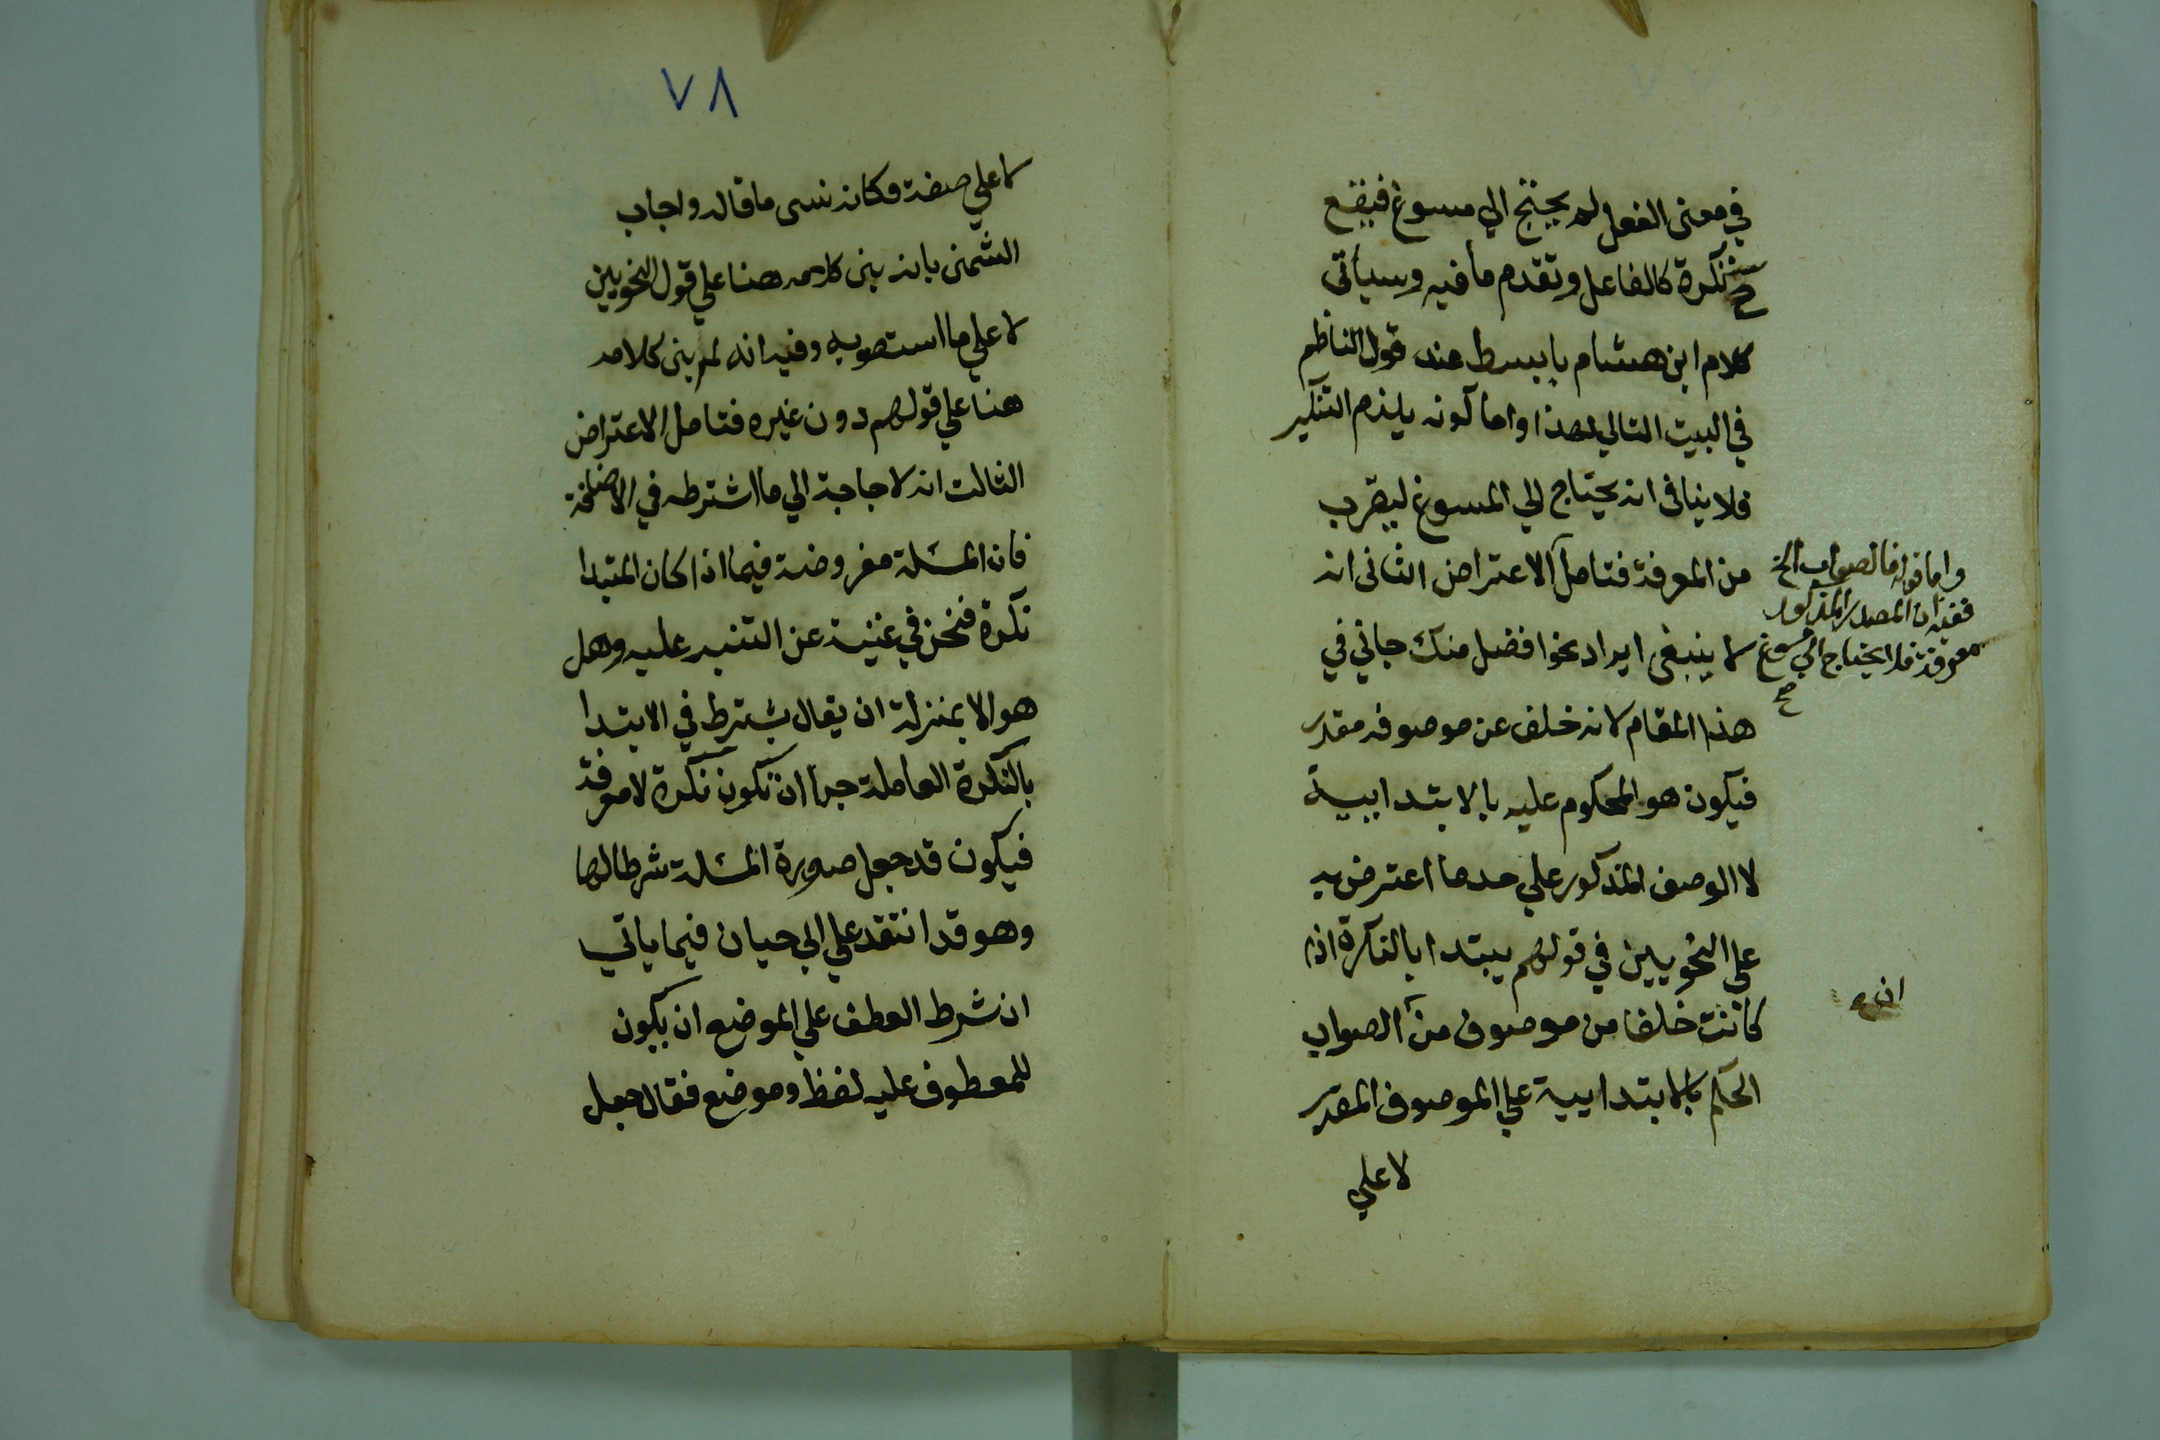 في معنى الفعل لم يحتج الي مسوغ فيقع
نكرة كالفاعل وتقدم ما فيه وسيأتى
كلام ابن هشام بابسط عند قول الناظم
في البيت التالي لهذا واما كونه يلزم التنكير
فلا ينافى انه يحتاج الي المسوغ ليقرب
من المعرفة فتامل الاعتراض الثانى انه
لا ينبغى ايراد نحو افضل منك جاني في
هذا المقام لانه خلف عن موصوفه مقدر
فيكون هو المحكوم عليه بالابتداييية
لا الوصف المذكور علي حد ما اعترض به
علي النحويين في قولهم يبتدا بالنكرة اذا
كانت خلفا من موصوف من الصواب
الحكم بالابتدايية علي الموصوف المقدر
لا علي
واما قوله فالصواب الخ
ففيه ان المصدر المذكور
معرفة فلا يحتاج الي مسوغ
صح
ان
٧٨
لا علي صفته فكانه نسى ما قاله واجاب
الشمنى بانه بنى كلامه هنا علي قول النحويين
لا علي ما استصوبه وفيه انه لم يبنى كلامه
هنا علي قولهم دون غيره فتامل الاعتراض
الثالث انه لا حاجة الي ما اشترطه في الاضافة
فان المسئلة مفروضة فيما اذا كان المبتدا
نكرة فنحن في غنية عن التنبيه عليه وهل
هو الا بمنزلة ان يقال يشترط في الابتدا
بالنكرة العاملة جرا ان تكون نكرة لا معرفة
فيكون قد جعل صورة المسئلة شرطا لها
وهو قد انتقد علي ابي حيان فيما ياتي
ان شرط العطف علي الموضع ان يكون
للمعطوف عليه لفظ وموضع فقال جعل